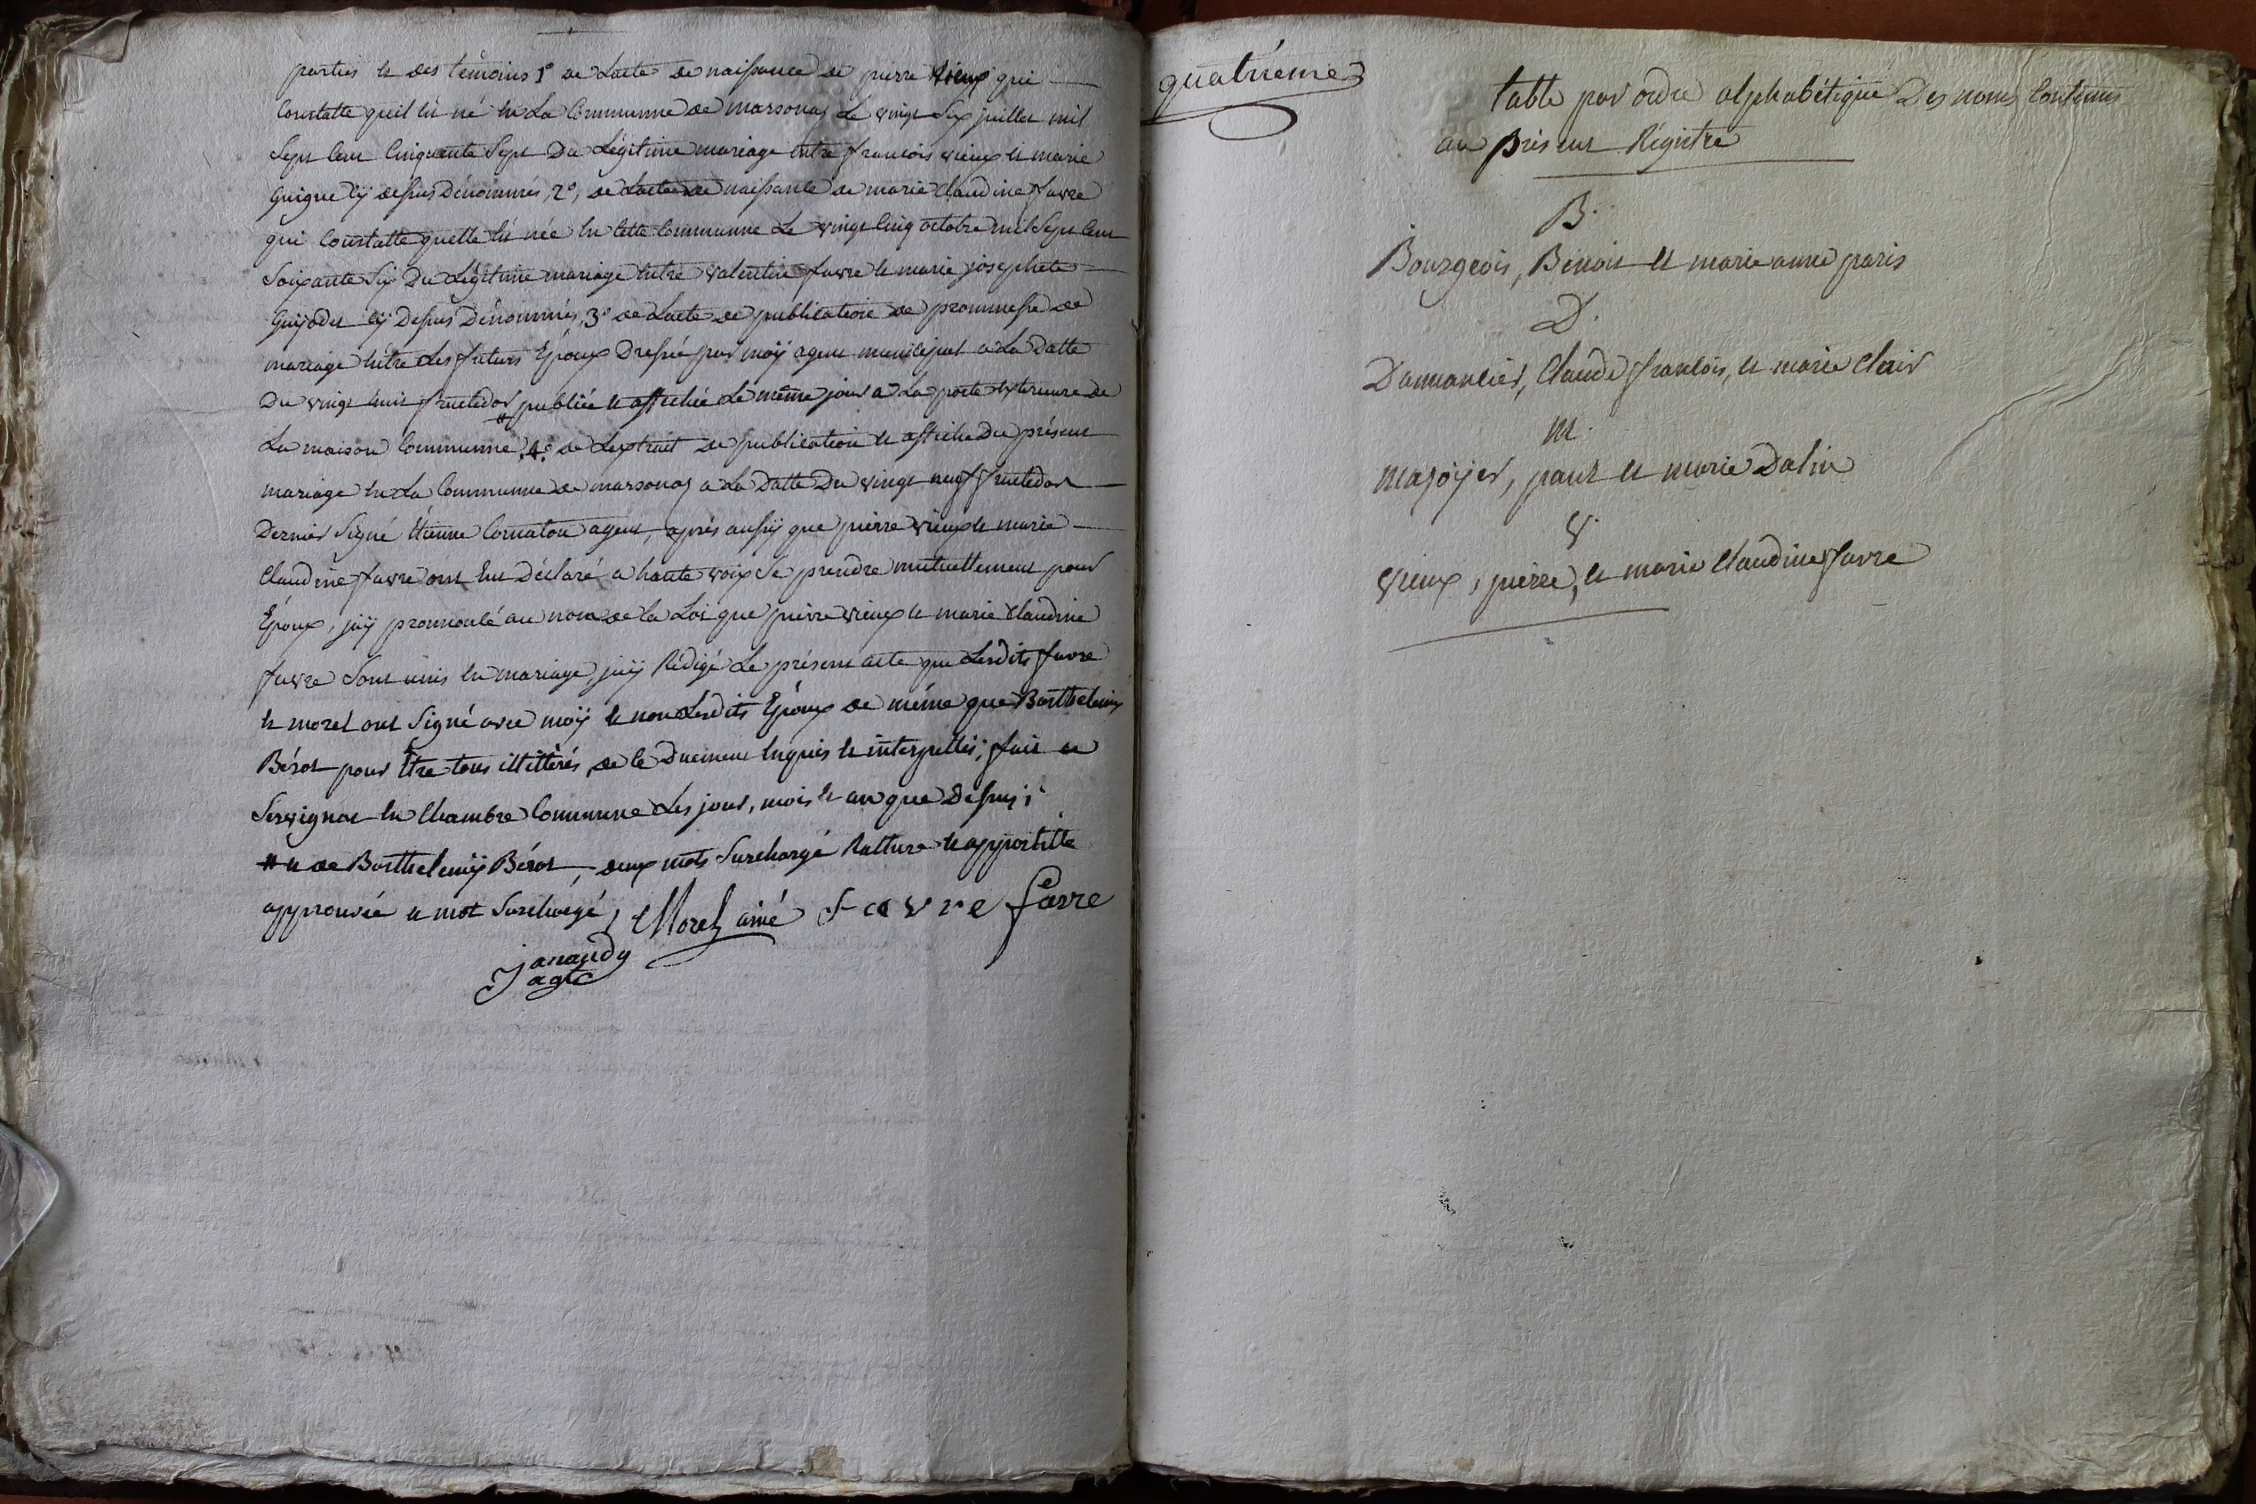 parties et des témoins 1° de Lacte de naissance de pierre vieux qui
Constatte quil est né en La Commune de marsonas Le vingt Six juillet mil
Sept Cent Cinquante Sept Du Légitime mariage entre francois vieux et marie
Guigue cÿ dessus Dénommés, 2°, de Lacte de naissance de marie claudine favre
qui Constatte quelle est née en cette Commune Le vingt cinq octobre mil Sept Cent
Soixante Six Du Légitime mariage entre valentin favre et marie josephete
Guÿodet cÿ Dessus Dénommés, 3° de Lacte de publication de prommesse de
mariage entre Les futurs Epoux Dressée par moÿ agent municipal a La Datte
Du vingt huit fructidor publiée et affichée Le même jour a La porte exterieure de
La maison Commune # 4° de Lextrait de publication et affiche Du présent
mariage en La Commune de marsonas a La Datte Du vingt neuf fructidor
Dernier Signé Etienne Cornaton agent, après aussÿ que pierre vieux et marie
Claudine favre ont Eut Déclaré a haute voix Se prendre mutuellement pour
Epoux, jaÿ prononcé au nom de la Loi que pierre vieux et marie claudine
favre Sont unis en mariage, jaÿ Rédigé Le présent acte que Lesdits favre
et morel ont Signé avec moÿ et non Lesdits Epoux de même que Barthelemÿ
Bérot pour Etre tous illittérés, de ce Duement Enquis et interpellés, fait a
Servignat en Chambre Commune Les jour, mois et an que Dessus
# et de Barthelemÿ Bérot, deux mots Surchargé Rature et appostille
approuvée et mot Surchargé, Morel ainé Favre favre
janaudy
agt
quatrieme
table par ordre alphabétique Des noms Contenus
au présent Régistre
B.
Bourgeois, Benoit et marie anne paris
D.
Damancier, Claude francois, et marie Clair
m.
mazoÿer, paul et marie Dalin
V.
vieux, pierre, et marie Claudine favre